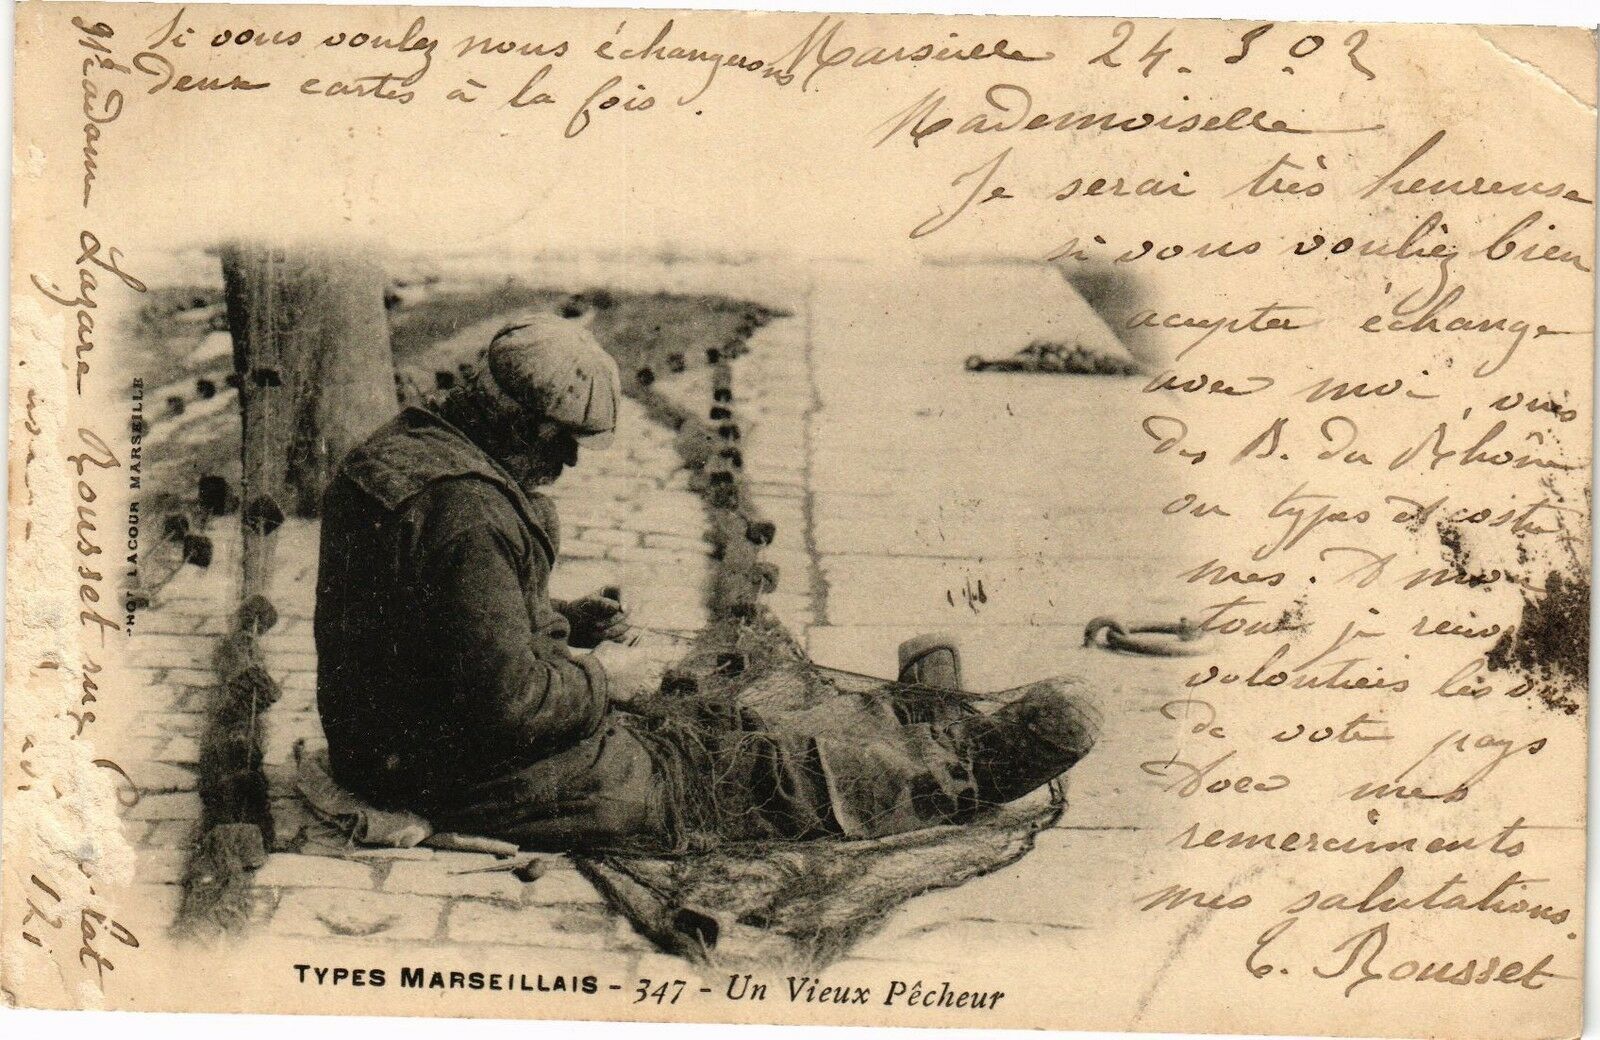 Si vous voulez nous échangerons
deux cartes à la fois.
Marseille 24. 3. 02
Mademoiselle
Je serai très heureuse
si vous vouliez bien
accepter échange
avec moi, vues
des B. du Rhône
ou types et costu
mes. A mon
tour je recev
volontiers les vues
de votre pays
Avec mes
remerciments
mes salutations.
C. Rousset
Madam Lazare Rousset rue
PHOT LACOUR MARSEILLE
TYPES MARSEILLAIS - 347 - Un Vieux Pêcheur